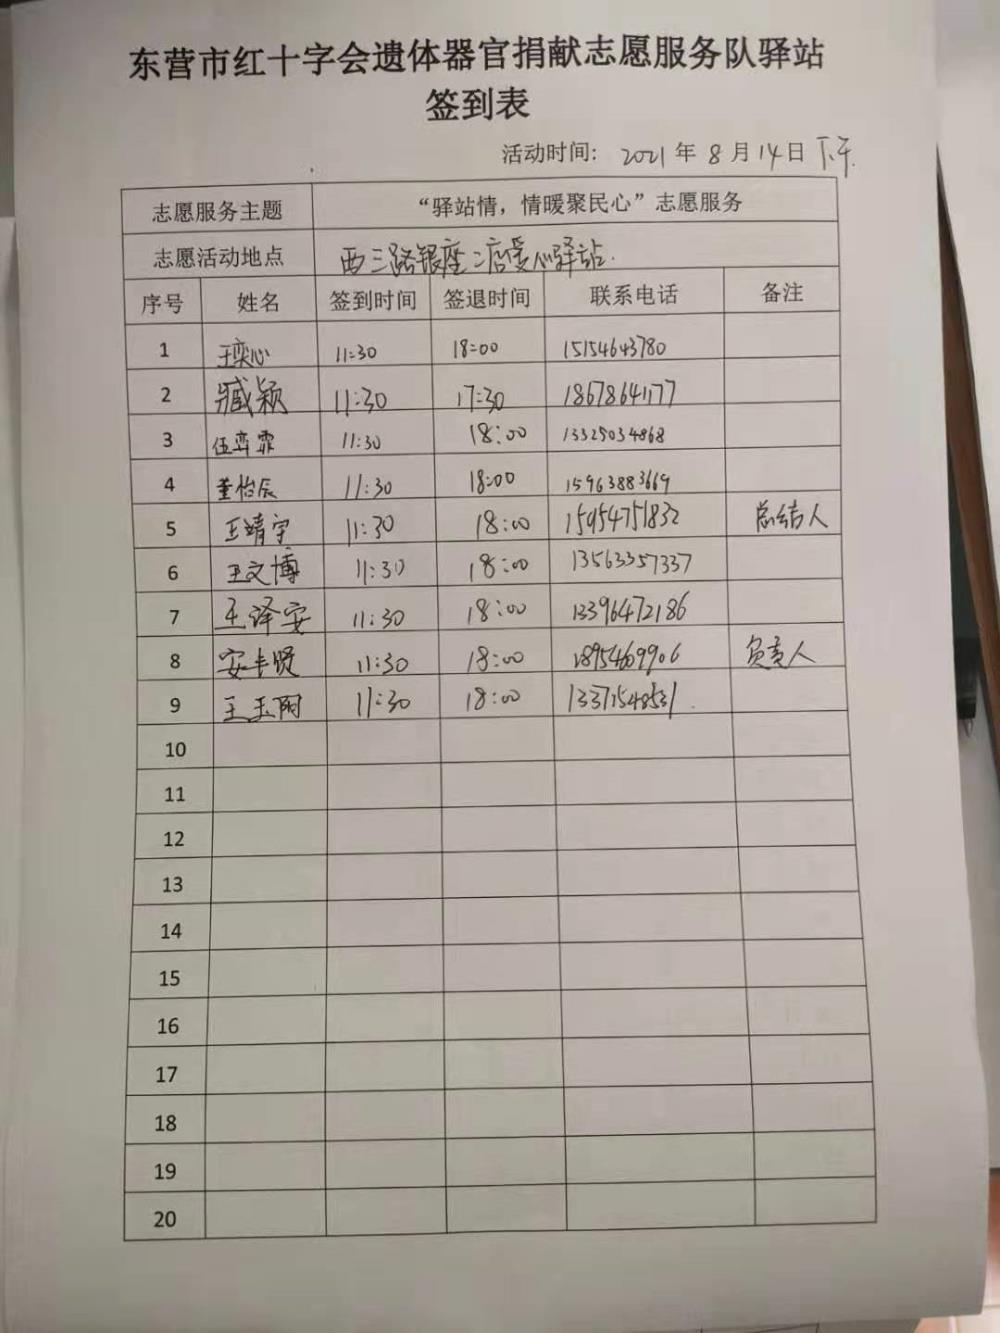 东营市红十字会遗体器官捐献志愿服务队驿站
签到表
活动时间: 2021 年 8 月 14 日 下午.
志愿服务主题 “驿站情，情暖聚民心”志愿服务
志愿活动地点 西三路银座二店爱心驿站.
序号 姓名 签到时间 签退时间 联系电话 备注
1 王奕心 11:30 18:00 15154643780
2 臧颖 11:30 17:30 18678641177
3 伍弈霏 11:30 18:00 13325034868
4 董怡辰 11:30 18:00 15963883669
5 王靖宇 11:30 18:00 15954751832 总结人
6 王文博 11:30 18:00 13563357337
7 王译安 11:30 18:00 13396472186
8 安丰贤 11:30 18:00 18954609906 负责人
9 王玉雨 11:30 18:00 13371548531
10
11
12
13
14
15
16
17
18
19
20